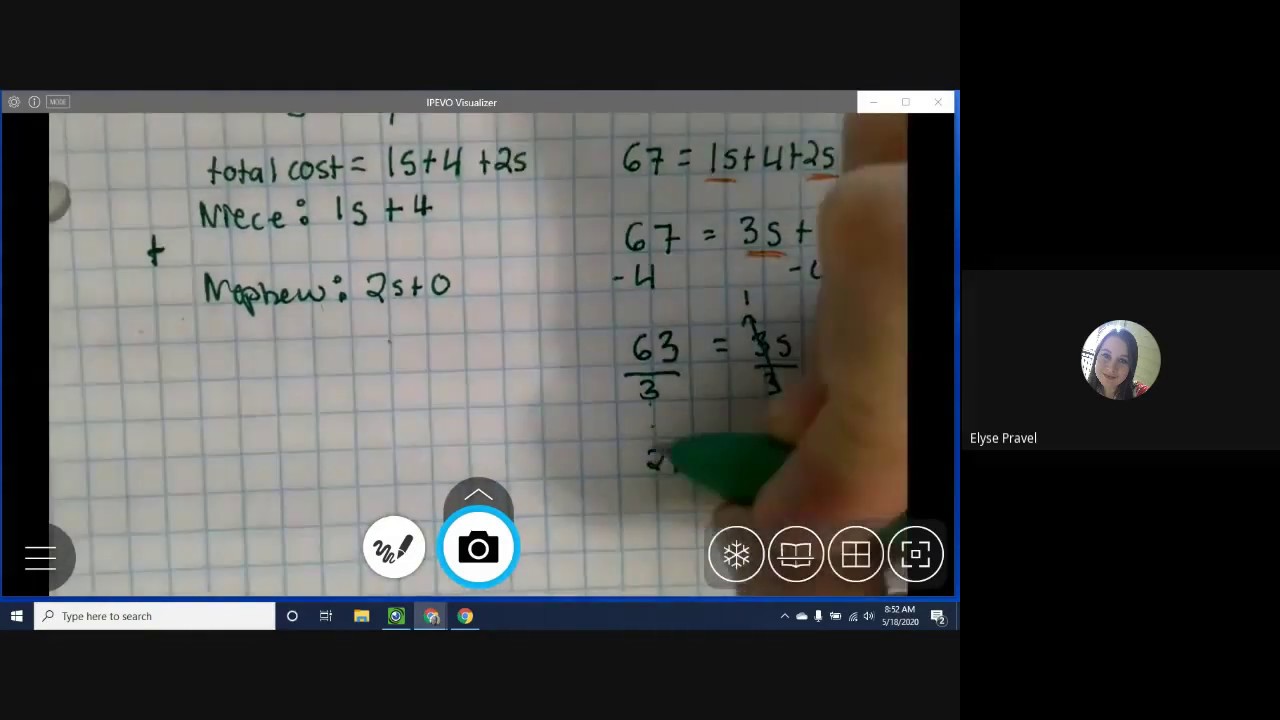 IPEVO Visualizer
MODE
total cost = 1s+4 +2s
Niece: 1s +4
+
Nephew: 2s+0
67 = 1s+4+2s
67 = 3s+
-4 -
1
63 = 3s
3 3
2
Elyse Pravel
Type here to search
8:52 AM
5/18/2020
2